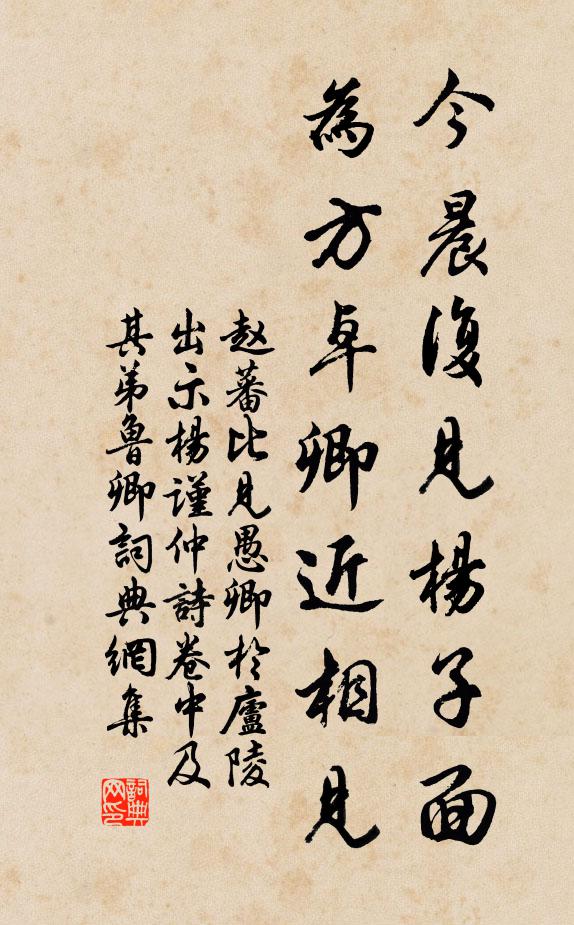 今晨復見楊子面
為方卓卿近相見
赵蕃比見愚卿於廬陵
出示楊謹仲詩卷中及
其弟魯卿詞典網集
詞典
网印